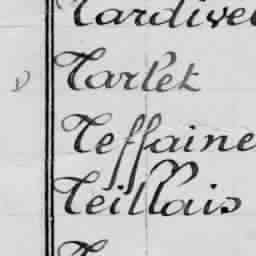 Tardivel
Tarlet
Teffaine
Teillais